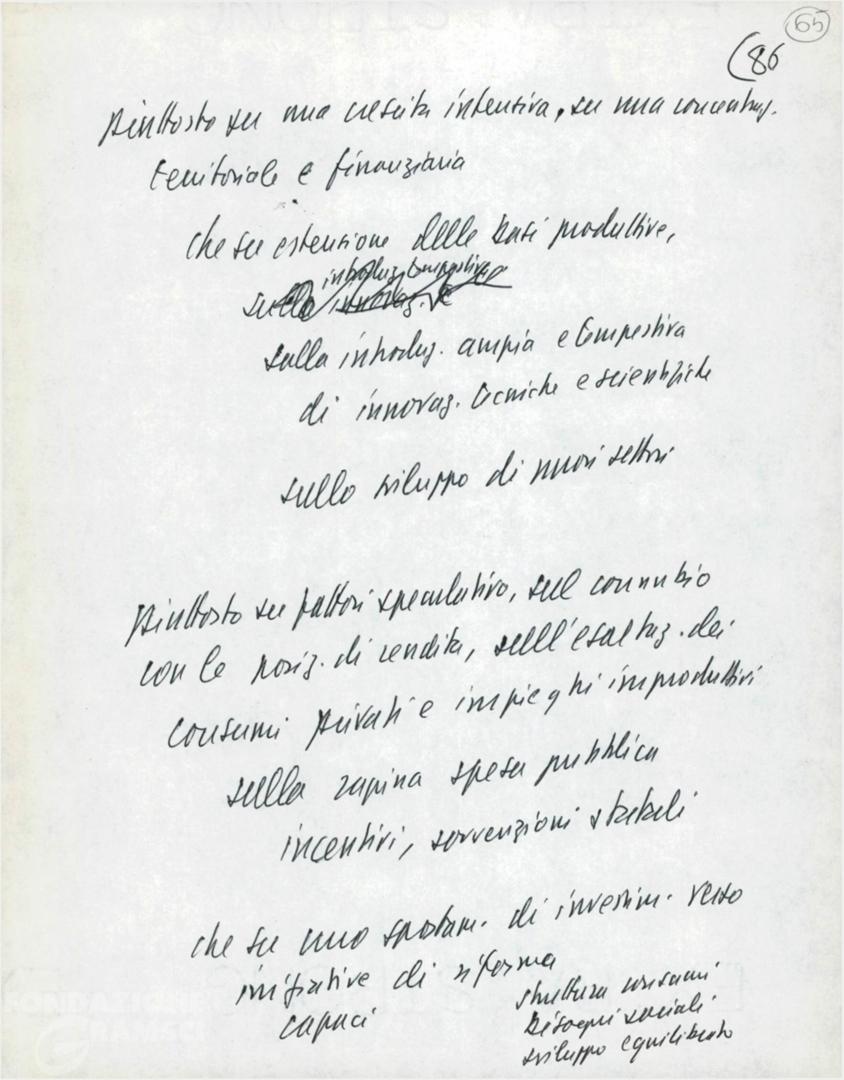 65
(86
piuttosto su una crescita intensiva, su una concentraz.
territoriale e finanziaria
che su estensione delle basi produttive,
introduz. tempestiva e
sulla innovaz. e
sulla introduz. ampia e tempestiva
di innovaz. tecniche e scientifiche
sullo sviluppo di nuovi settori
piuttosto su fattori speculativo, sul connubio
con le posiz. di rendita, sull'esaltaz. dei
consumi privati e impieghi improduttivi
sulla rapina spesa pubblica
incentivi, sovvenzioni statali
che su uno spostam. di investim. verso
iniziative di riforma
capaci
struttura consumi
bisogni sociali
sviluppo equilibrato
FONDAZIONE
GRAMSCI